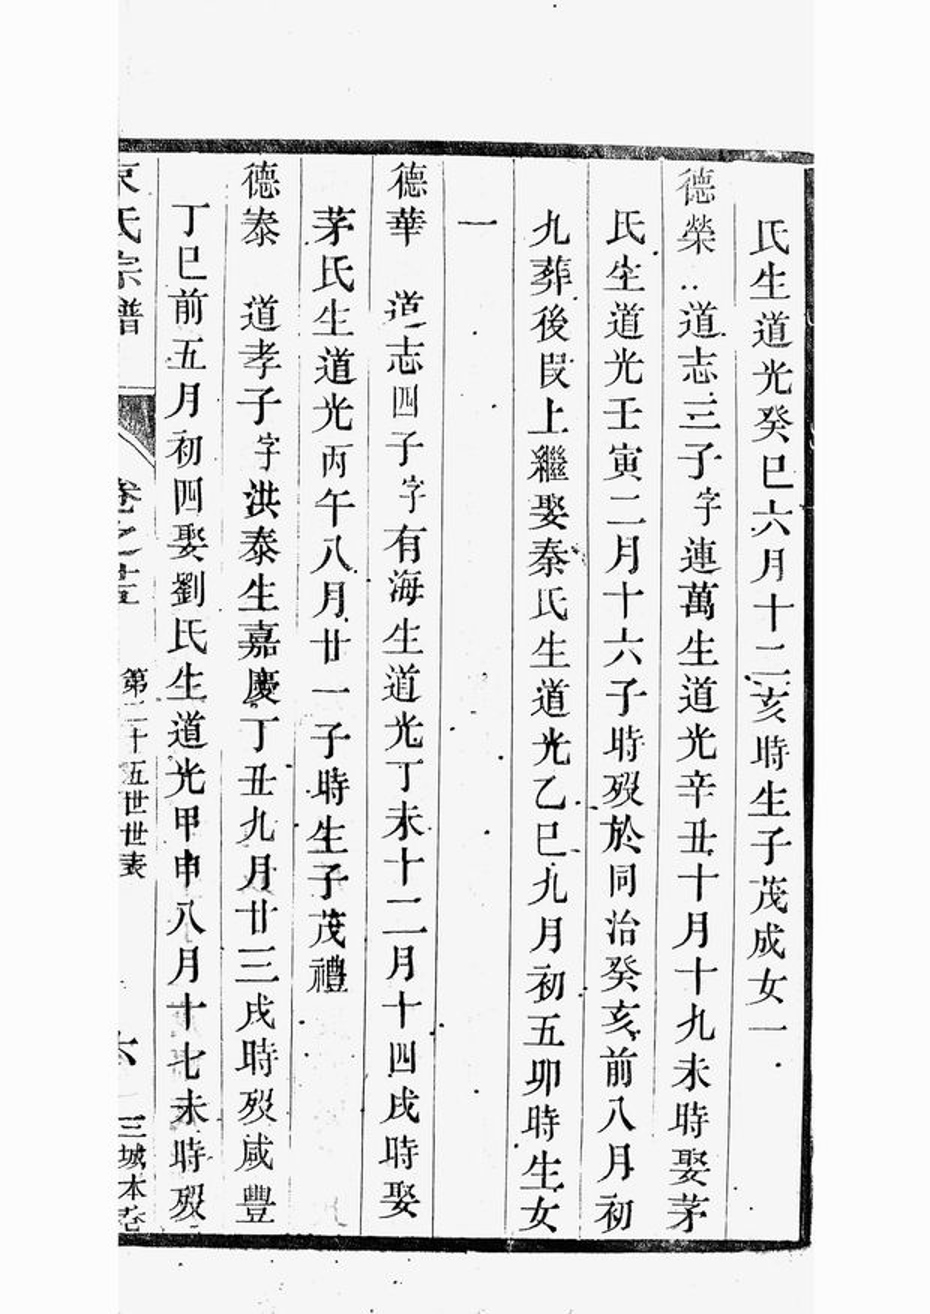 氏生道光癸巳六月十二亥時生子茂成女一
德榮 道志三子字連萬生道光辛丑十月十九未時娶茅
氏生道光壬寅二月十六子時歿於同治癸亥前八月初
九葬後段上繼娶秦氏生道光乙巳九月初五卯時生女
一
德華 道志四子字有海生道光丁未十二月十四戌時娶
茅氏生道光丙午八月廿一子時生子茂禮
德泰 道孝子字洪泰生嘉慶丁丑九月廿三戌時歿咸豐
丁巳前五月初四娶劉氏生道光甲申八月十七未時歿
氏宗譜 卷之 第二十五世世表 六 三城本卷